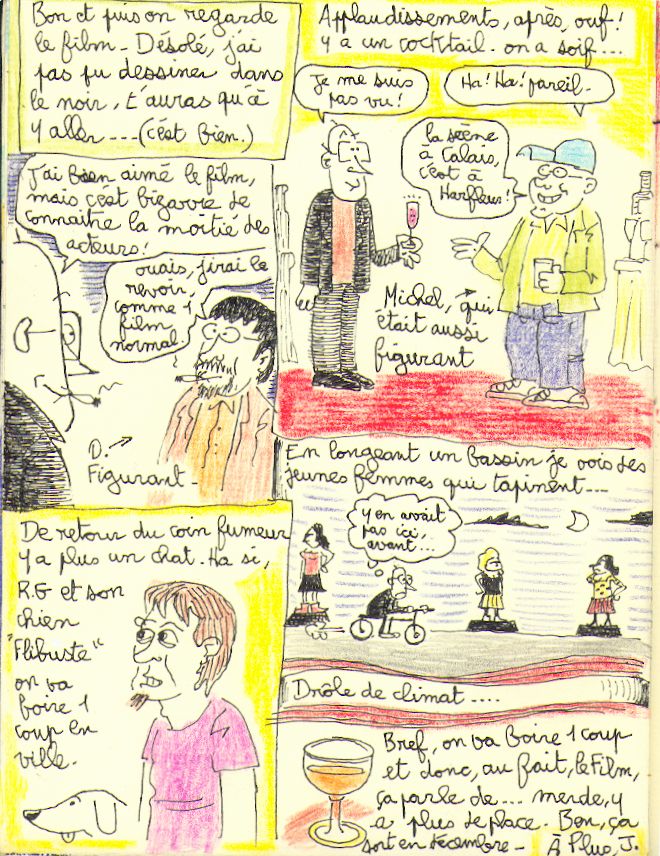 Bon et puis on regarde
le film - Désolé, j'ai
pas pu dessiner dans
le noir, t'auras qu'à
y aller ---- (c'est bien.)
Applaudissements, après, ouf!
y a un cocktail - on a soif ...
Je me suis
pas vu!
Ha! Ha! pareil -
la scène
à Calais,
c'est à
Harfleur!
Michel, → qui
était aussi
figurant
J'ai bien aimé le film,
mais c'est bizarre de
connaitre la moitié des
acteurs!
ouais, j'irai le
revoir,
comme 1
film
normal
D. →
Figurant -
En longeant un bassin je vois des
jeunes femmes qui tapinent ....
y en avait
pas ici,
avant ...
De retour du coin fumeur
y a plus un chat. Ha si,
R.G et son
chien
"Flibuste"
on va
boire 1
coup en
ville.
Drôle de climat ....
Bref, on va boire 1 coup
et donc, au fait, le film,
ça parle de .... merde, y
a plus de place. Bon, ça
sort en décembre - À Plue, J.